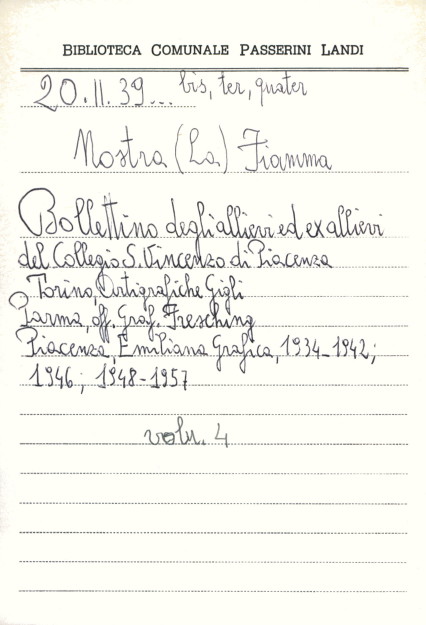 BIBLIOTECA COMUNALE PASSERINI LANDI
20.II.39... bis, ter, quater
Nostra (La) Fiamma
Bollettino degli allievi ed ex allievi
del Collegio S. Vincenzo di Piacenza
Torino, Artigrafiche Gigli
Parma, off. Graf. Fresching
Piacenza, Emiliana Grafica, 1934-1942;
1946; 1948-1957
voll. 4